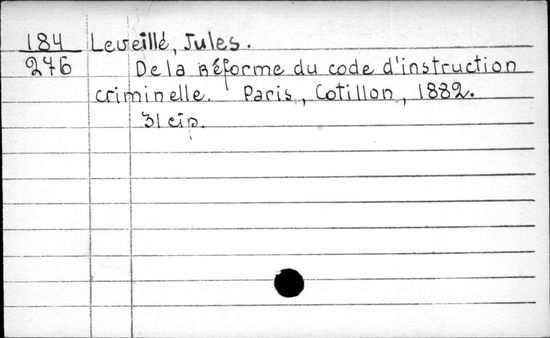 184 Leveillé, Jules.
246 De la Réforme du code d'instruction
criminelle. Paris, Cotillon, 1882.
31 cip.